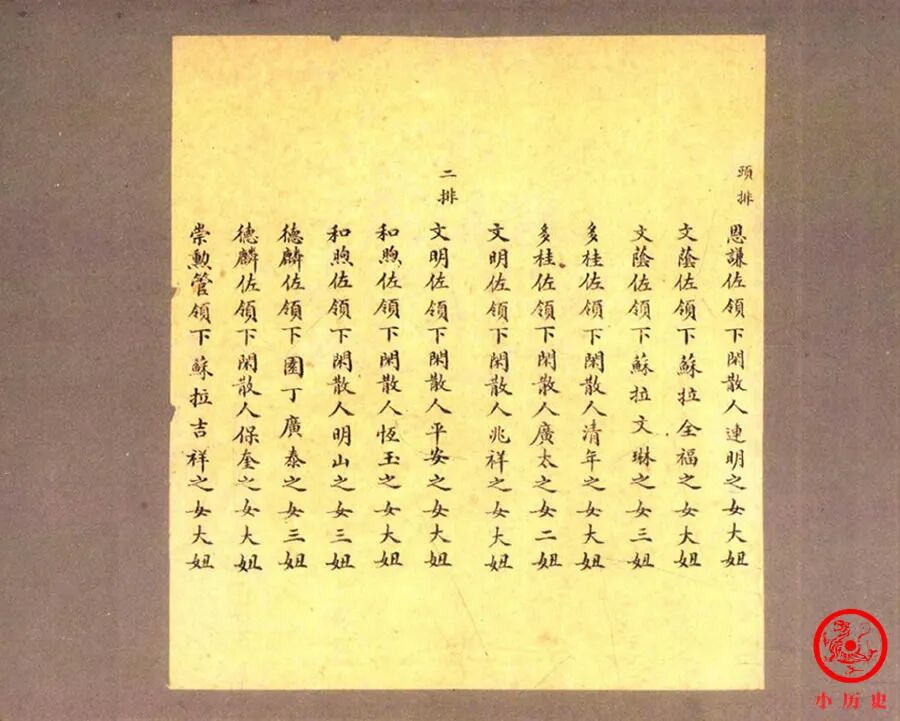 頭排
恩謙佐領下閑散人連明之女大妞
文蔭佐領下蘇拉全福之女大妞
文蔭佐領下蘇拉文琳之女三妞
多桂佐領下閑散人清年之女大妞
多桂佐領下閑散人廣太之女二妞
文明佐領下閑散人兆祥之女大妞
二排
文明佐領下閑散人平安之女大妞
和煦佐領下閑散人恆玉之女大妞
和煦佐領下閑散人明山之女三妞
德麟佐領下園丁廣泰之女三妞
德麟佐領下閑散人保奎之女大妞
崇勲管領下蘇拉吉祥之女大妞
小历史